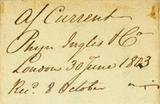 A/ Current
Phyn Inglis & Co
London 30 June 1803
Recd. 8 October